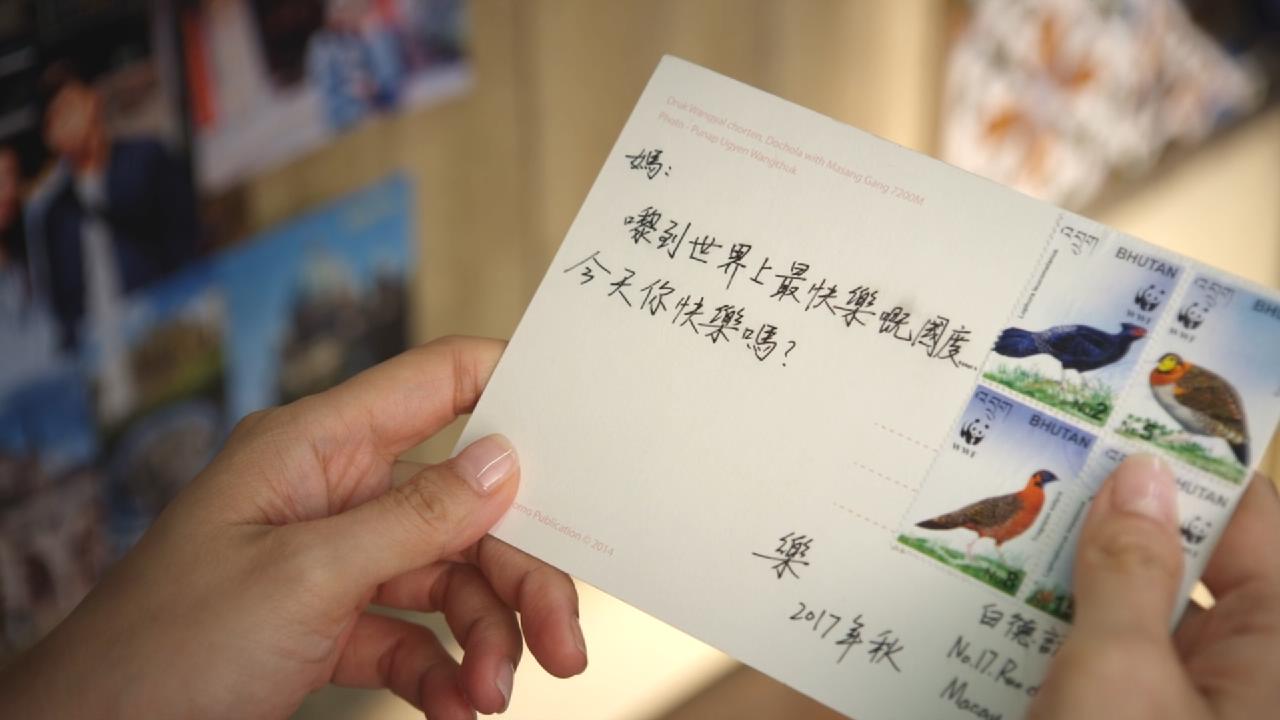 Druk Wangyal chorten, Dochola with Masang Gang 7200M
Photo - Punap Ugyen Wangchuk
媽:
嚟到世界上最快樂嘅國度....
今天你快樂嗎?
樂
2017年秋
omo Publication © 2014
BHUTAN
WWF
2
BH
WWF
5
BHUTAN
WWF
8
HUTAN
白德
No.17. Rua d
Macau